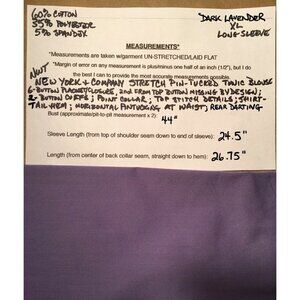 60% COTTON
35% POLYESTER
5% SPANDEX
DARK LAVENDER
XL
LONG-SLEEVE
MEASUREMENTS*
*Measurements are taken w/garment UN-STRETCHED/LAID FLAT
*Margin of error on any measurement is plus/minus one half of an inch (1/2"), but I do
the best I can to provide the most accurate measurements possible.
NWT
NEW YORK + COMPANY STRETCH PIN-TUCKED TUNIC BLOUSE
6-BUTTON PLACKET CLOSURE, 2ND FROM TOP BUTTON MISSING BY DESIGN;
2-BUTTON CUFFS; POINT COLLAR; TOP STITCH DETAILS; SHIRT-
TAIL HEM; HORIZONTAL PINTUCKING AT WAIST; REAR DARTING
Bust (armpit-to-pit measurement x 2): 44"
Sleeve Length (from top of shoulder seam down to end of sleeve): 24.5"
Length (from center of back collar seam, straight down to hem): 26.75"